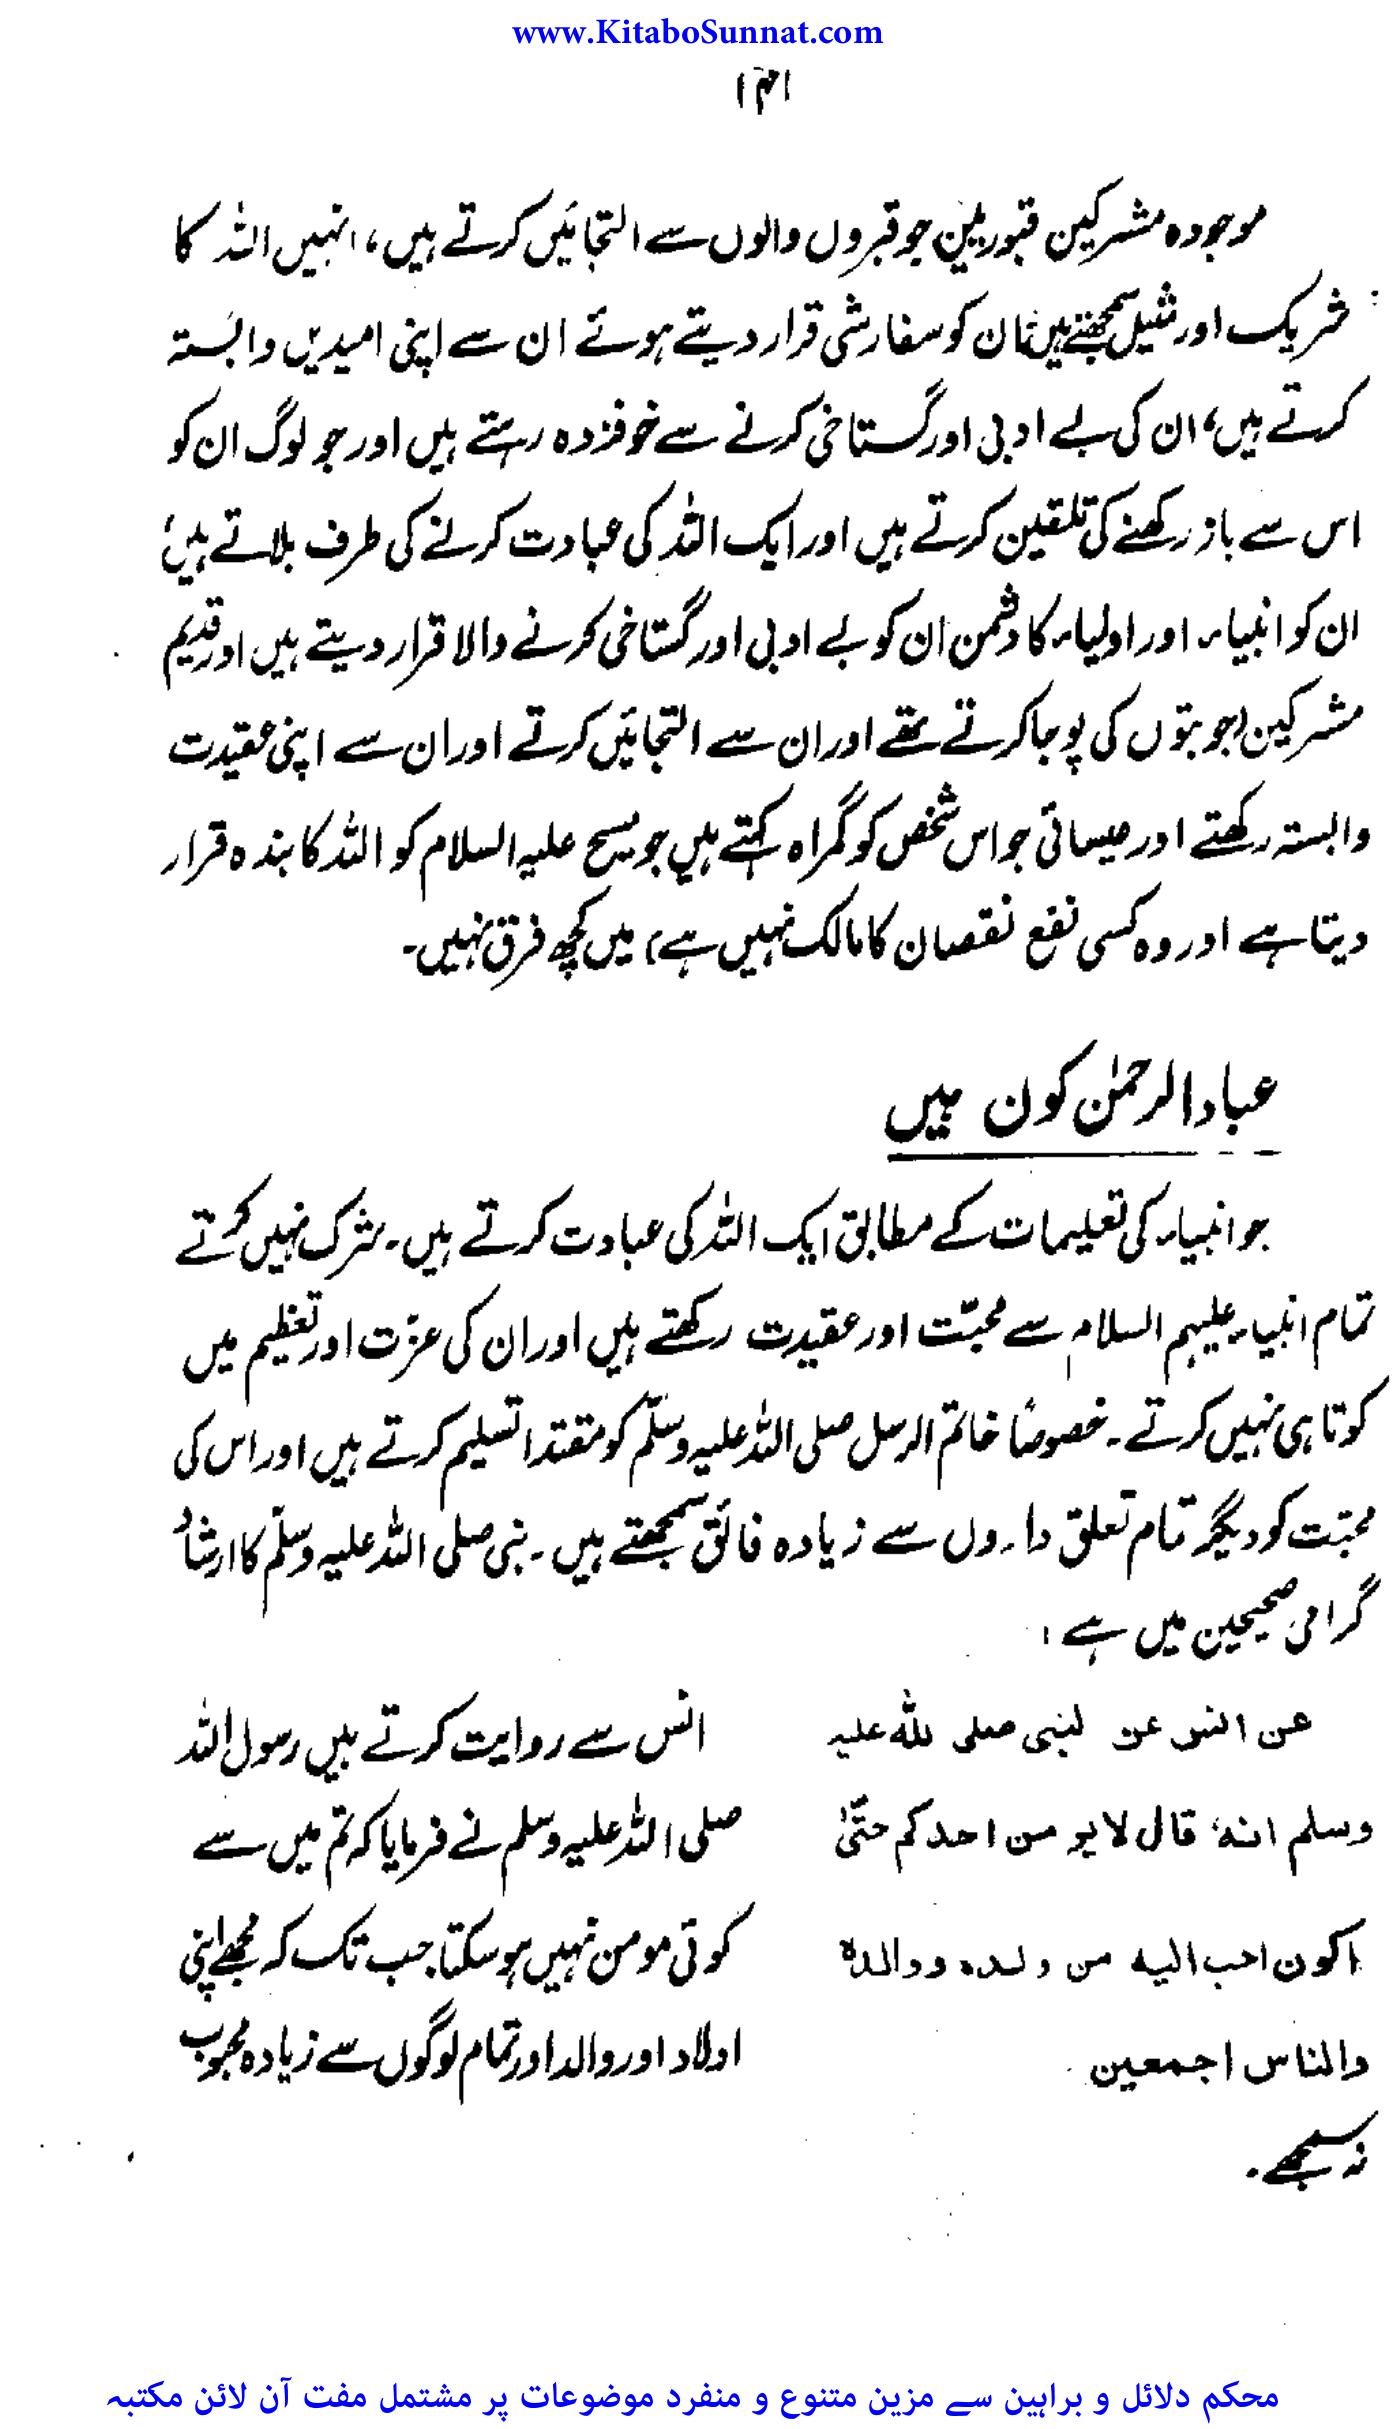 www.KitaboSunnat.com
۱۴۱
موجودہ مشرکین قبوریین جو قبروں والوں سے التجائیں کرتے ہیں، انہیں اللہ کا
شریک اور مثیل سمجھتے ہیں، ان کو سفارشی قرار دیتے ہوئے ان سے اپنی امیدیں وابستہ
کرتے ہیں، ان کی بے ادبی اور گستاخی کرنے سے خوفزدہ رہتے ہیں اور جو لوگ ان کو
اس سے باز رکھنے کی تلقین کرتے ہیں اور ایک اللہ کی عبادت کرنے کی طرف بلاتے ہیں،
ان کو انبیاء اور اولیاء کا دشمن ان کو بے ادبی اور گستاخی کرنے والا قرار دیتے ہیں اور قدیم
مشرکین (جو بتوں کی پوجا کرتے تھے اور ان سے التجائیں کرتے اور ان سے اپنی عقیدت
وابستہ رکھتے اور عیسائی جو اس شخص کو گمراہ کہتے ہیں جو مسیح علیہ السلام کو اللہ کا بندہ قرار
دیتا ہے اور وہ کسی نفع نقصان کا مالک نہیں ہے) میں کچھ فرق نہیں۔
عباد الرحمٰن کون ہیں
جو انبیاء کی تعلیمات کے مطابق ایک اللہ کی عبادت کرتے ہیں۔ شرک نہیں کرتے
تمام انبیاء علیہم السلام سے محبّت اور عقیدت رکھتے ہیں اور ان کی عزّت اور تعظیم میں
کوتاہی نہیں کرتے۔ خصوصًا خاتم الرسل صلی اللہ علیہ وسلّم کو مقتدا تسلیم کرتے ہیں اور اس کی
محبّت کو دیگر تمام تعلق داروں سے زیادہ فائق سمجھتے ہیں۔ نبی صلی اللہ علیہ وسلّم کا ارشاد
گرامی صحیحین میں ہے:
عن انس عن لنبی صلی للہ علیہ
وسلم انہ قال لا یو من احدکم حتّٰی
اکون احب الیہ من ولدہ ووالدہ
والناس اجمعین
انس سے روایت کرتے ہیں رسول اللہ
صلی اللہ علیہ وسلم نے فرمایا کہ تم میں سے
کوئی مومن نہیں ہو سکتا جب تک کہ مجھے اپنی
اولاد اور والد اور تمام لوگوں سے زیادہ محبوب
نہ سمجھے۔
محکم دلائل و براہین سے مزین متنوع و منفرد موضوعات پر مشتمل مفت آن لائن مکتبہ